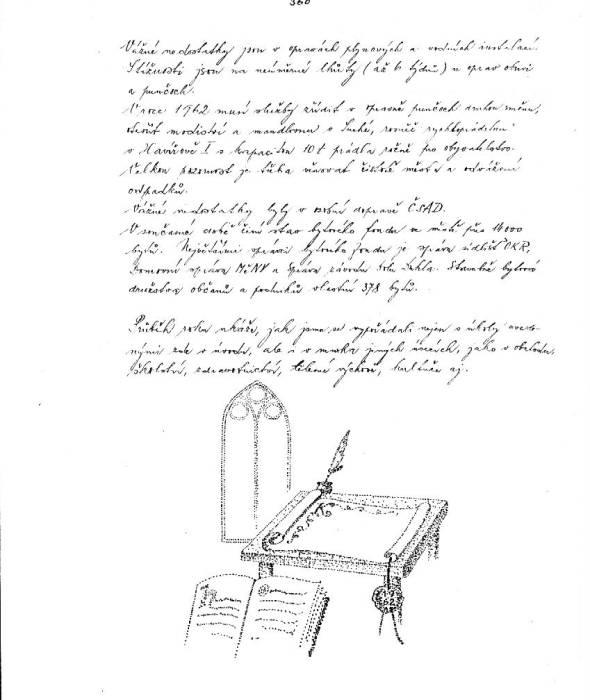 360
Vážné nedostatky jsou v opravách plynových a vodních instalací.
Stížnosti jsou na neúměrné lhůty (až 6 týdnů) u oprav obuvi
a punčoch.
V roce 1962 musí služby zřídit v opravně punčoch druhou směnu,
otevřít modiství a mandlovnu v Suché, rovněž rychloprádelnu
v Havířově I s kapacitou 10 t prádla ročně pro obyvatelstvo.
Velkou pozornost je třeba věnovat čistotě města a odvážení
odpadků.
Vážné nedostatky byly v osobní dopravě ČSAD.
V současné době činí stav bytového fondu ve městě přes 14 000
bytů. Největšími správci bytového fondu je správa sídlišť OKR,
Domovní správa MěNV a Správa závodu Sehla. Stavební bytová
družstva občanů a podniků vlastní 378 bytů.
Průběh roku ukáže, jak jsme se vypořádali nejen s úkoly uvede-
nými zde v úvodu, ale i v mnoha jiných úsecích, jako v obchodu,
školství, zdravotnictví, tělesné výchově, kultuře aj.
62